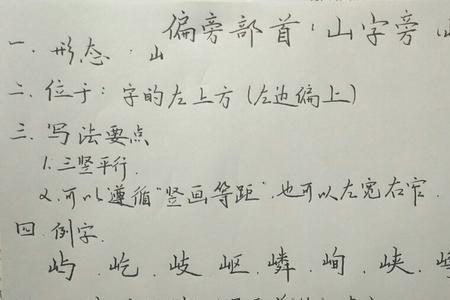 偏旁部首:山字旁
一.形态:山
二.位于:字的左上方(左边偏上)
三.写法要点
1.三竖平行.
2.可以遵循"竖画等距",也可以左宽右窄.
四.例字.
屿.屹.岐.岖.嶙.峋.峡.